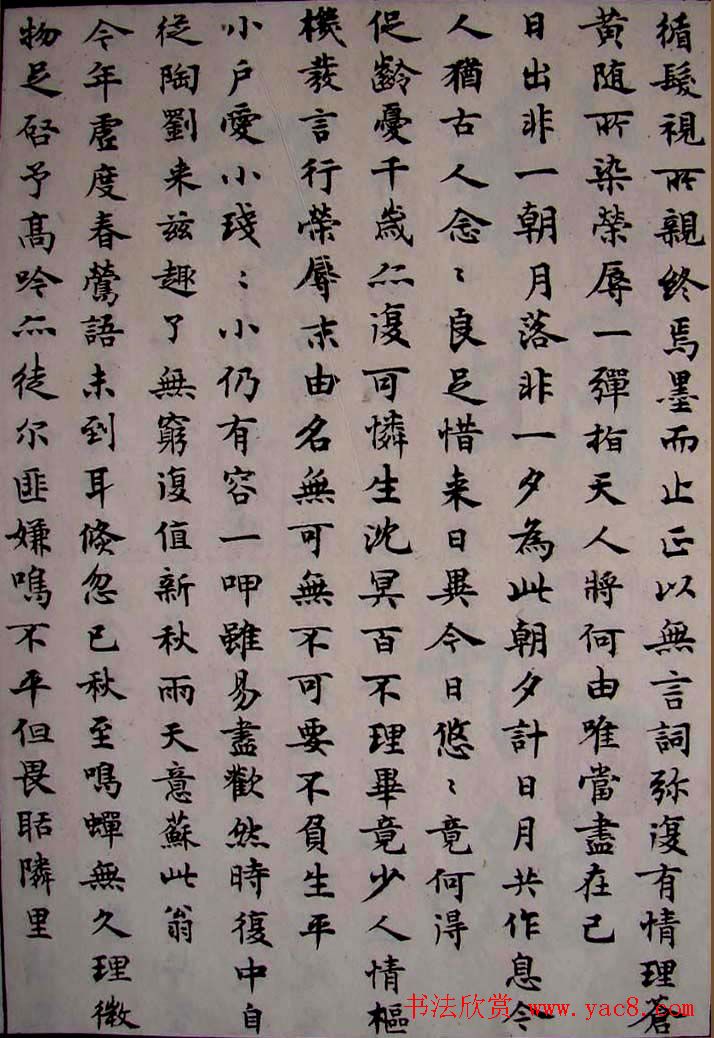 循髮視所親終焉墨而止正以無言詞弥復有情理蒼
黄随所染榮辱一彈指天人將何由唯當盡在己
日出非一朝月落非一夕為此朝夕計日月共作息今
人猶古人念〻良足惜来日異今日悠〻竟何得
促齡憂千歲亦復可憐生沈冥百不理畢竟少人情樞
機發言行榮辱末由名無可無不可要不負生平
小戶愛小琖〻小仍有容一呷雖易盡歡然時復中自
從陶劉来茲趣了無窮復值新秋雨天意蘇此翁
今年虛度春鶯語未到耳倏忽已秋至鳴蟬無久理微
物足啓予高吟亦徒尔匪嫌鳴不平但畏聒隣里
书法欣赏 www.yac8.com